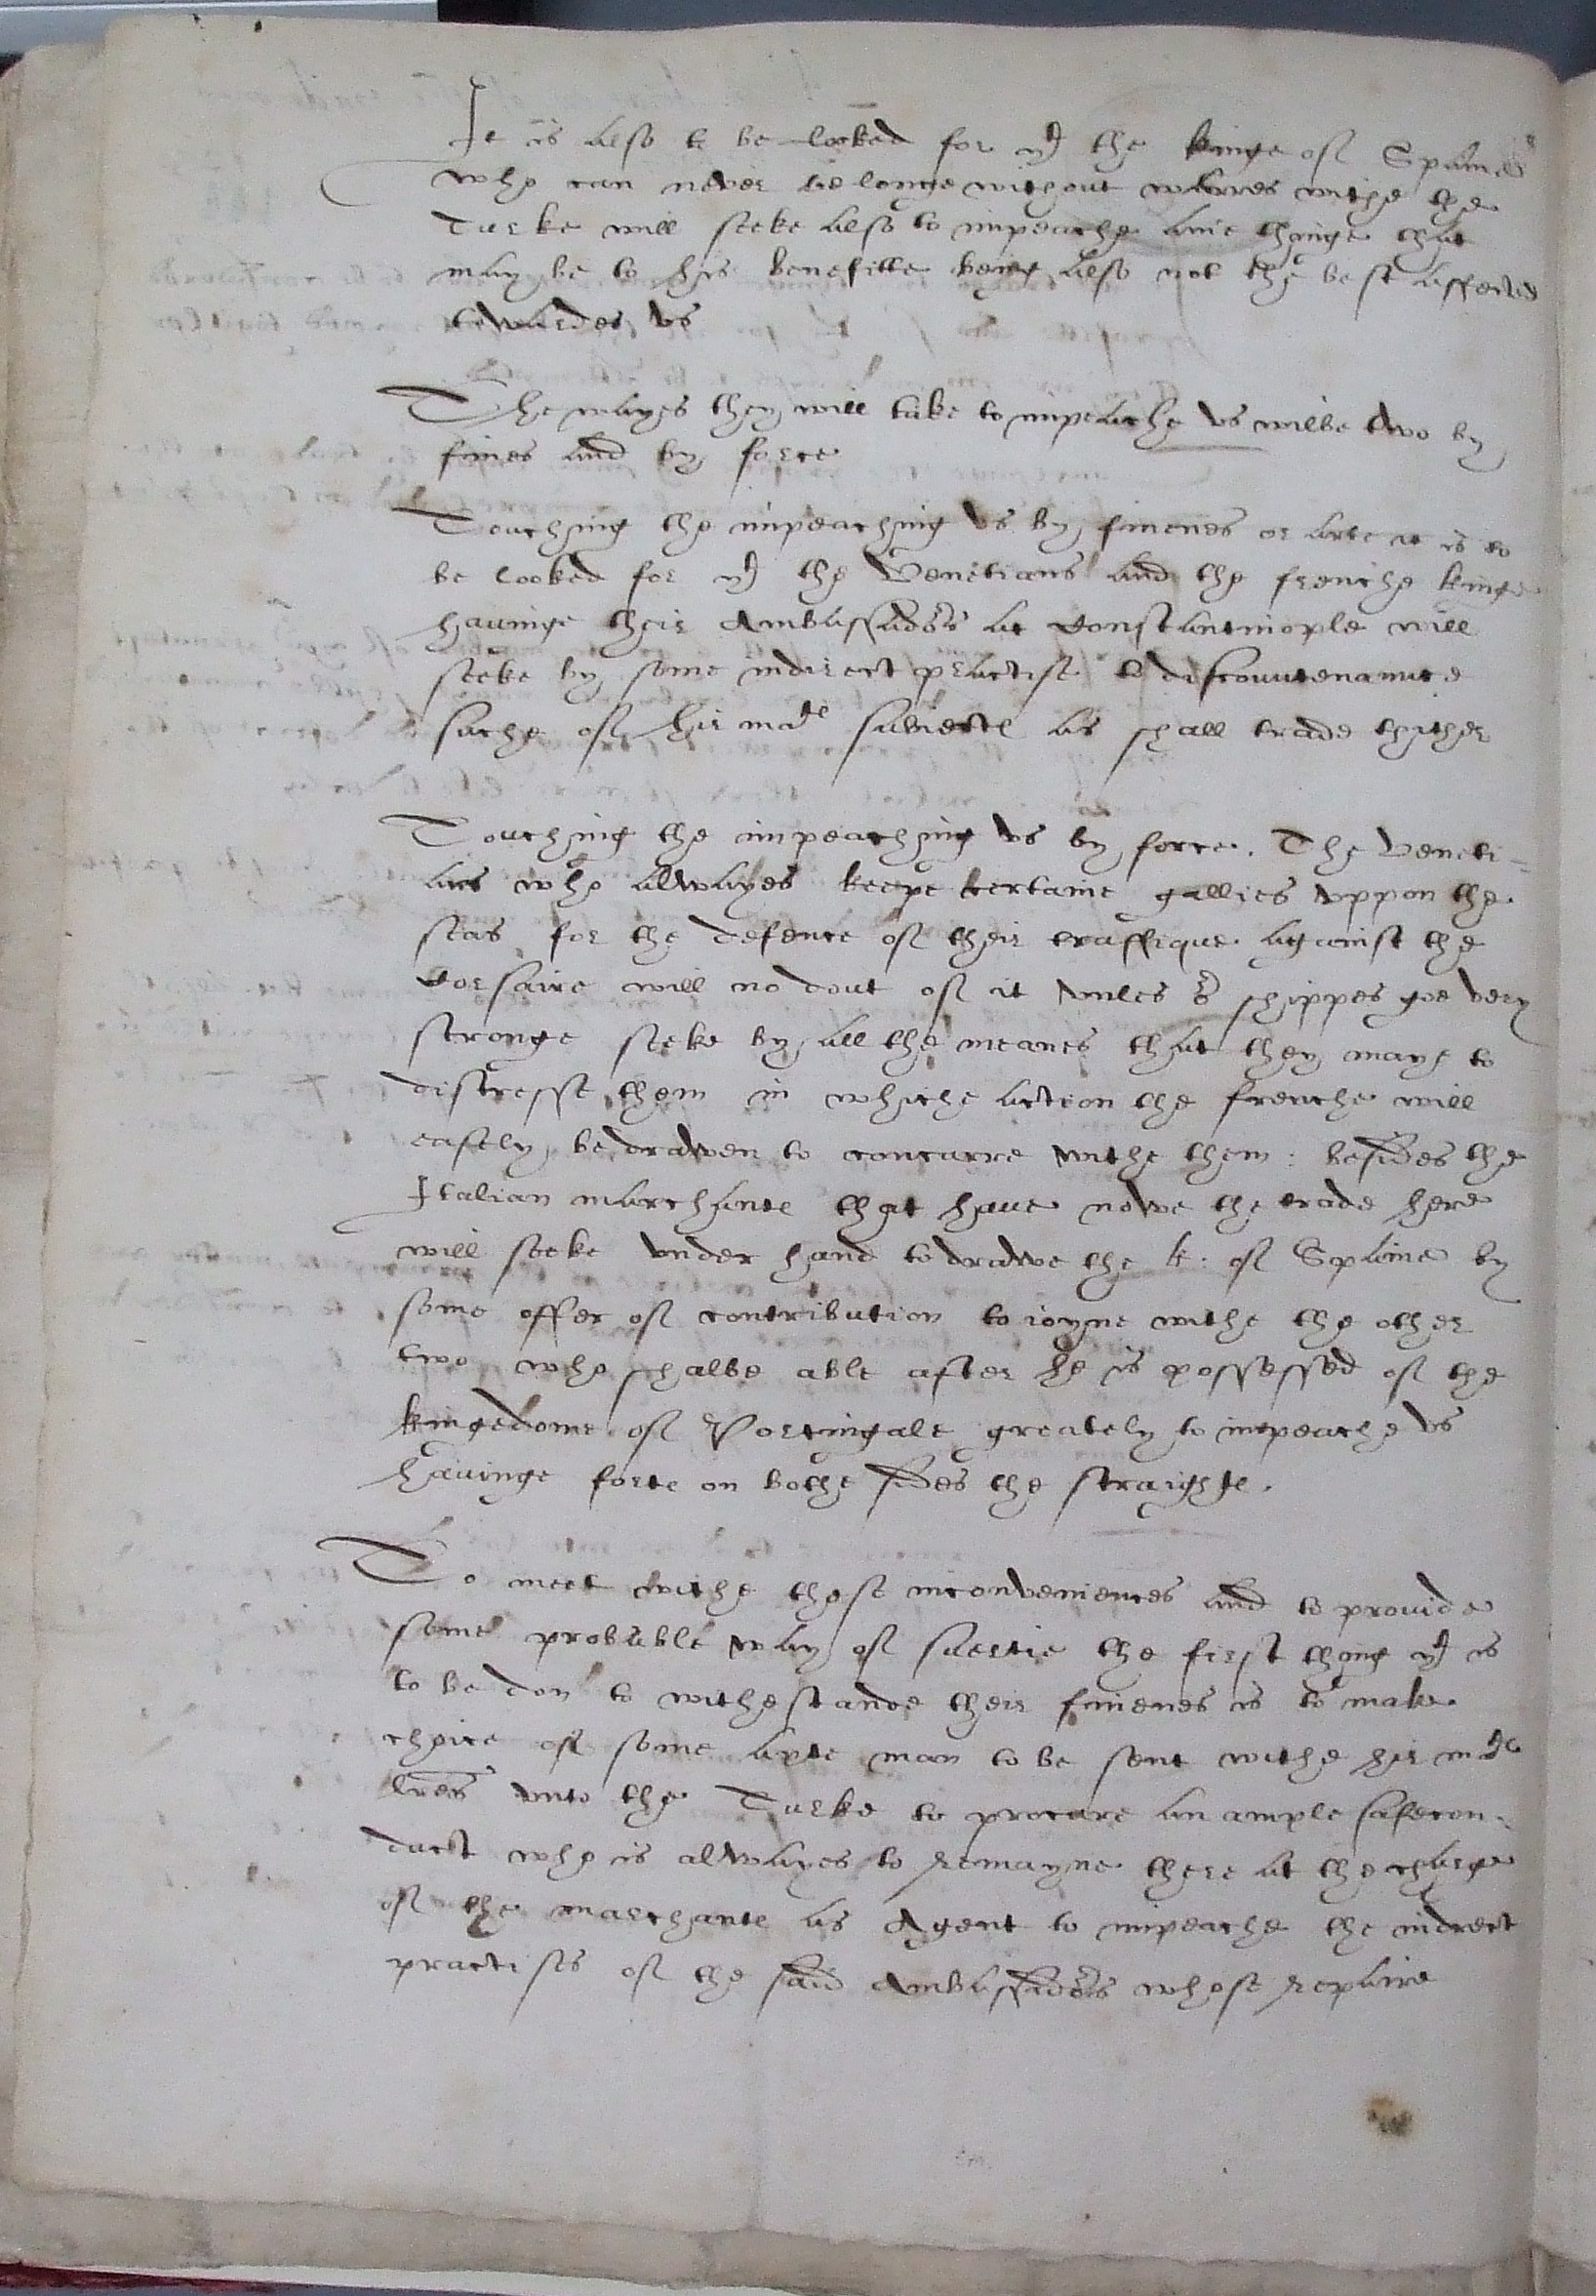 It is also to be looked for yt the kinge of Spaines
who can never be longe without warres withe the
Turke will seeke also to impeache anie thinge that
may be to his benefitte being also not the best affected
towardes vs
The wayes they will take to impeache vs wilbe two by
fines and by force
Touching the impeaching vs by finenes or arte it is to
be looked for yt the Venetians and the frenche kinge
havinge their Ambassadors at Constantinople will
seeke by some indirect practise to discountenaunce
suche of hir mates subiects as shall trade thither
Touching the impeaching vs by force. The Veneti-
ans who alwayes keepe certaine gallies vppon the
seas for the defence of their traffique against the
Corsaire will no dout of it vnles or shippes goe very
stronge seke by all the meanes that they maye to
distresse them in whiche action the frenche will
easely be drawen to concurre withe them: besides the
Italian marchants that haue nowe the trade here
will seeke vnder hand to drawe the k: of Spaine by
some offer of contribution to ioyne withe the other
two who shalbe able after he is possessed of the
kingedome of Portingale greately to impeache vs
havinge forte on bothe sides the straights.
To meet withe these inconveniences and to provide
some probable way of suertie the first thing yt is
to be don to withestande their finenes is to make
choice of some apte man to be sent withe hir mates
lres vnto the Turke to procure an ample safecon-
duct who is alwayes to remayne there at the charge
of the marchants as Agent to impeache the indirect
practises of the said Ambassadors whose repaire